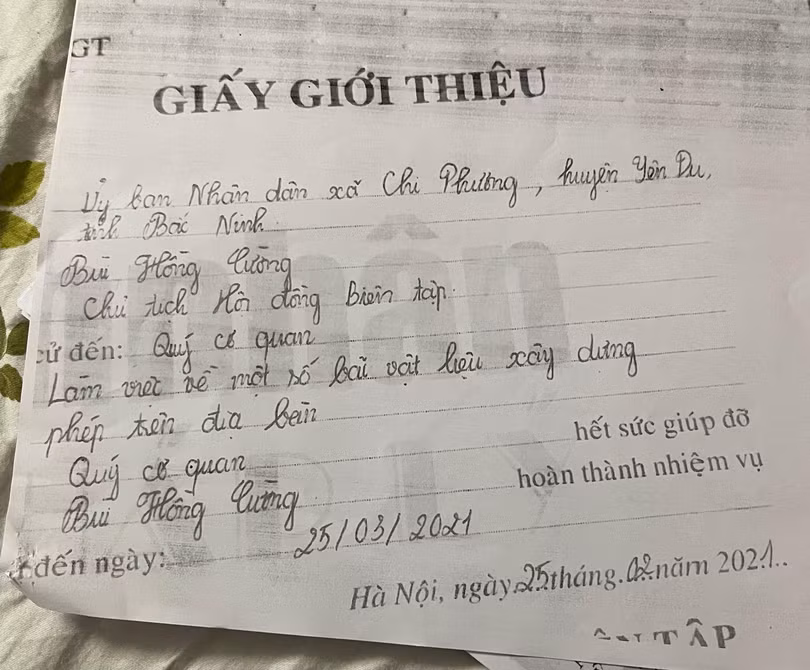 GT
GIẤY GIỚI THIỆU
Uỷ ban Nhân dân xã Chi Phương, huyện Yên Du,
tỉnh Bắc Ninh
Bùi Hồng Cường
Chủ tịch Hội đồng biên tập
cử đến: Quý cơ quan
Làm việc về một số bãi vật liệu xây dựng
phép trên địa bàn
Quý cơ quan hết sức giúp đỡ
Bùi Hồng Cường hoàn thành nhiệm vụ
đến ngày: 25/03/2021
Hà Nội, ngày 25 tháng. 02 năm 2021..
TẬP